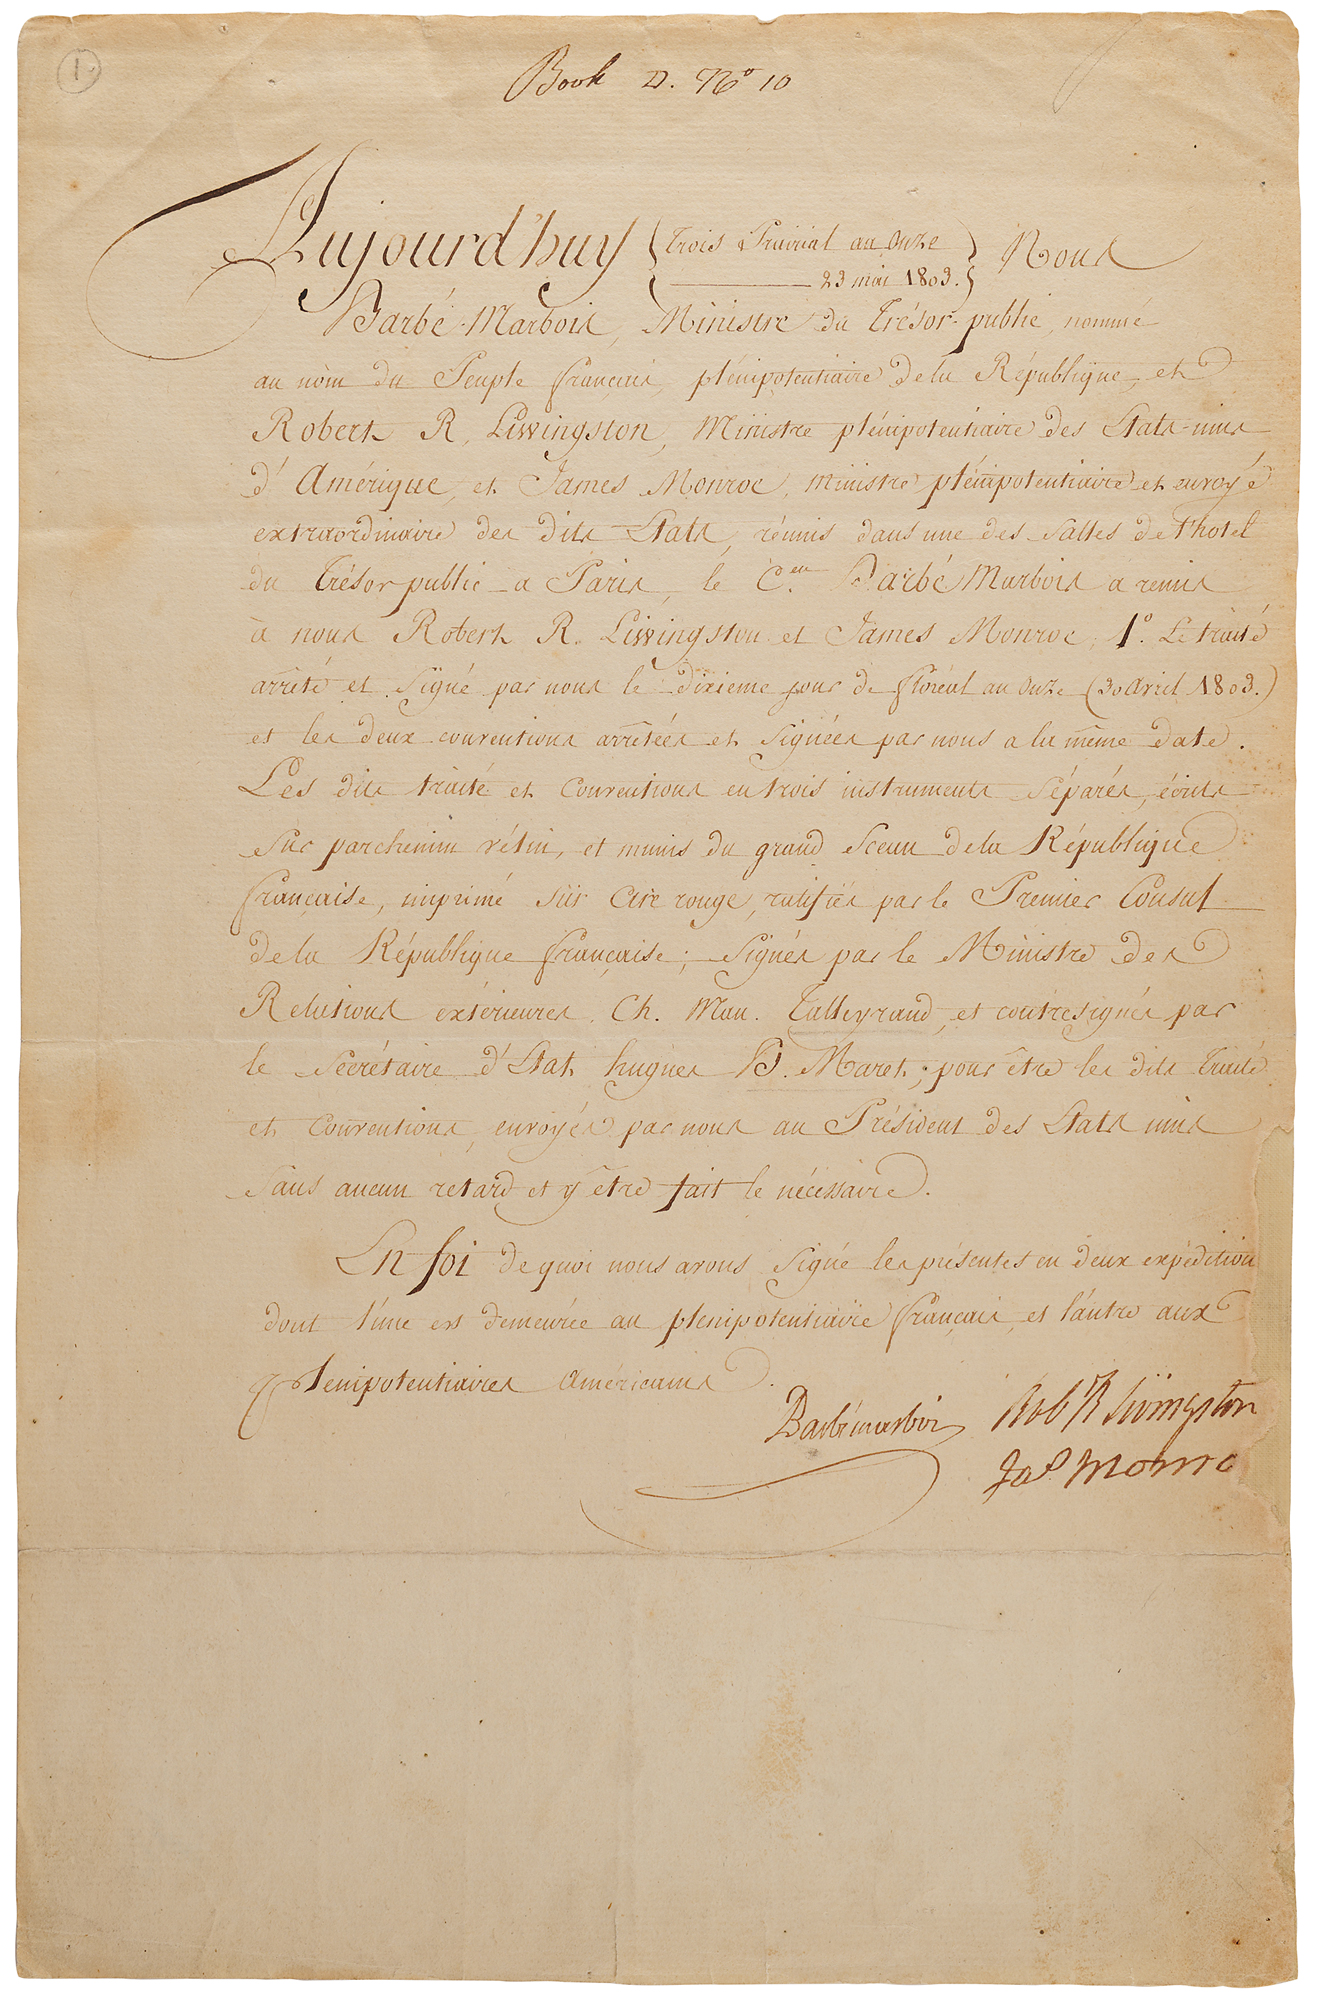 1.
Book D. Nº 10
Aujourd'huy { trois Prairial an Onze } Nous
23 mai 1803.
Barbé-Marbois, Ministre du Trésor-public, nommé
au nom du Peuple français, plénipotentiaire de la République, et
Robert R. Livingston, Ministre plénipotentiaire des Etats-unis
d'Amérique, et James Monroe, ministre plénipotentiaire et envoyé
extraordinaire des dits Etats, réunis dans une des Salles de l'hotel
du Trésor public a Paris, le C.en Barbé Marbois a remis
à nous Robert R. Livingston et James Monroe, 1º. Le traité
arrêté et Signé par nous le dixieme jour de floréal an Onze (30 Avril 1803.)
et les deux conventions arrêtées et Signées par nous a la même date.
Les dits traité et Conventions en trois instruments Séparés, écrits
Sur parchemin vélin, et munis du grand Sceau de la République
française, imprimé Sur Cire rouge, ratifiés par le Premier Consul
de la République française; Signés par le Ministre des
Relations extérieures, Ch. Mau. Talleyrand, et contresignés par
le Secrétaire d'Etat hugues B. Maret; pour être les dits Traité
et Conventions, envoyés par nous au Président des Etats unis
Sans aucun retard et y être fait le nécessaire.
En foi de quoi nous avons Signé les présentes en deux expédition
dont l'une est demeurée au plenipotentiaire français, et l'autre aux
Plenipotentiaires Américains.
Barbé marbois Rob R Livingston
Jas Monro